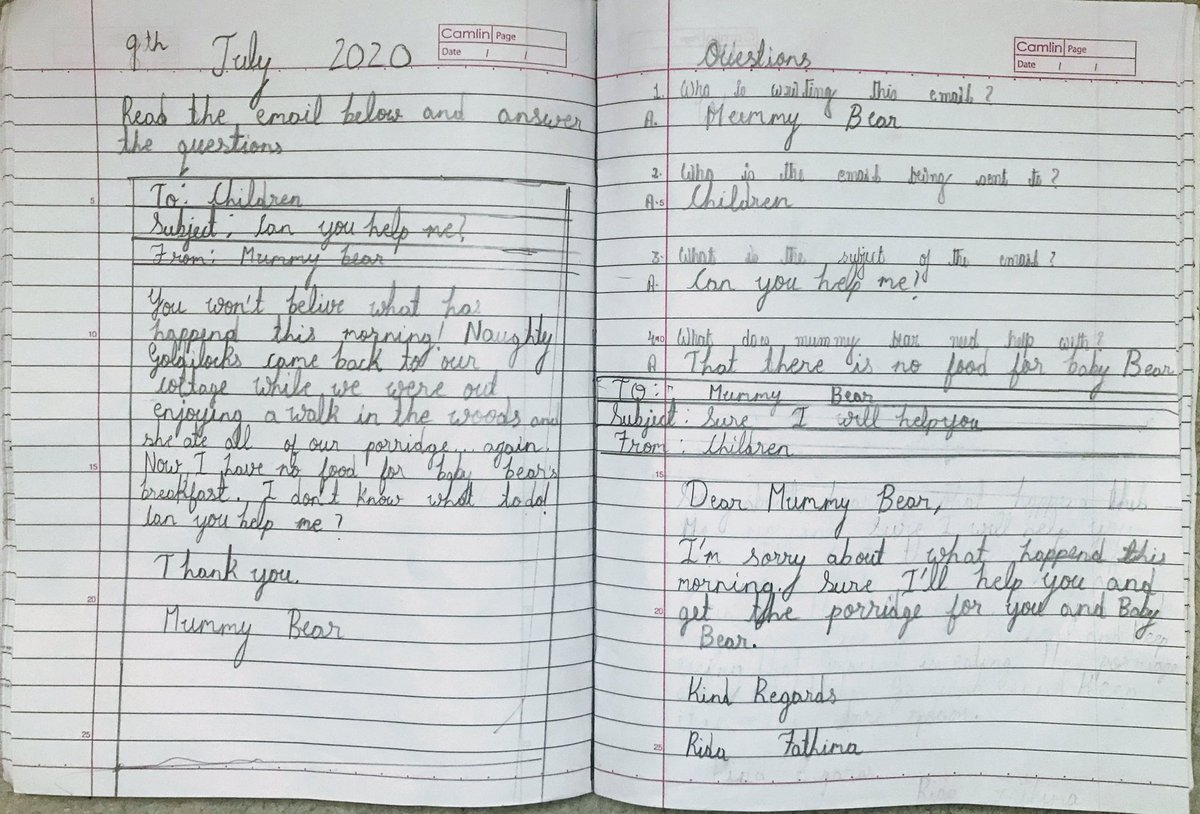 Camlin Page
Date / /
9th July 2020
Read the email below and answer
the questions
To: Children
Subject: Can you help me?
From: Mummy bear
5
You won't belive what has
happend this morning! Naughty
10
Golgilocks came back to our
cottage while we were out
enjoying a walk in the woods and
she ate all of our porridge.. again.
Now I have no food for baby bear's
15
breakfast. I don't know what to do!
Can you help me?
Thank you.
20
Mummy Bear
25
Camlin Page
Date / /
Questions
1. Who is writing this email?
A. Mummy Bear
2. Who is the email being sent to?
A. 5 Children
3. What is the subject of the email?
A. Can you help me?
4. 10 What does mummy bear need help with?
A That there is no food for baby Bear
To: Mummy Bear
Subject: Sure I will help you
From: Children
15
Dear Mummy Bear,
I'm sorry about what happend this
morning. Sure I'll help you and
20 get the porridge for you and Baby
Bear.
Kind Regards
25 Rida Fathima